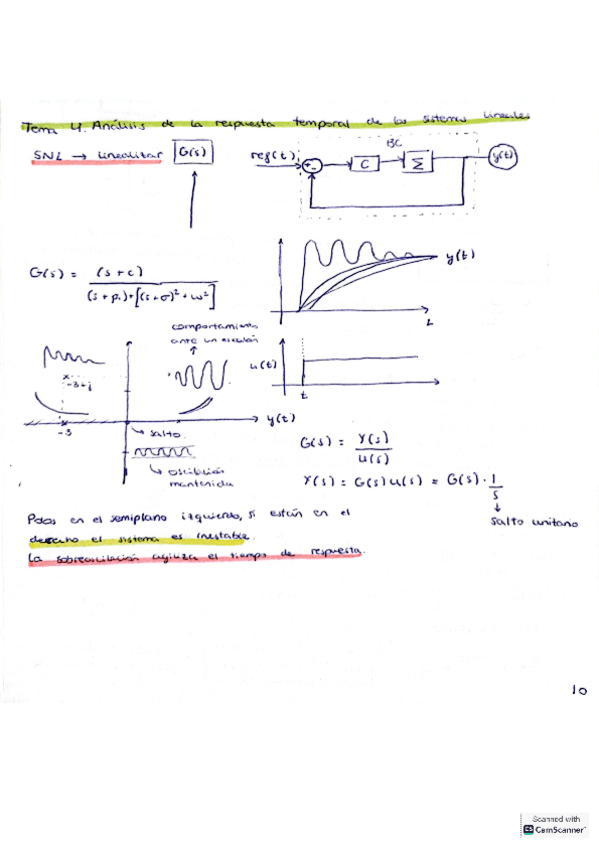 Tema 4. Análisis de la respuesta temporal de los sistemas lineales
SNL → linealizar G(s)
ref(t)
BC
+
-
C
Σ
y(t)
G(s) = (s + c) / (s + p₁)+[(s+σ)²+ω²]
y(t)
t
comportamiento
ante un escalón
-3+j
-3
y(t)
salto
oscilación
mantenida
u(t)
t
G(s) = Y(s) / U(s)
Y(s) = G(s) U(s) = G(s) · 1/s
salto unitario
Polos en el semiplano izquierdo, si están en el
derecho el sistema es inestable.
La sobreoscilación agiliza el tiempo de respuesta.
10
Scanned with
CamScanner